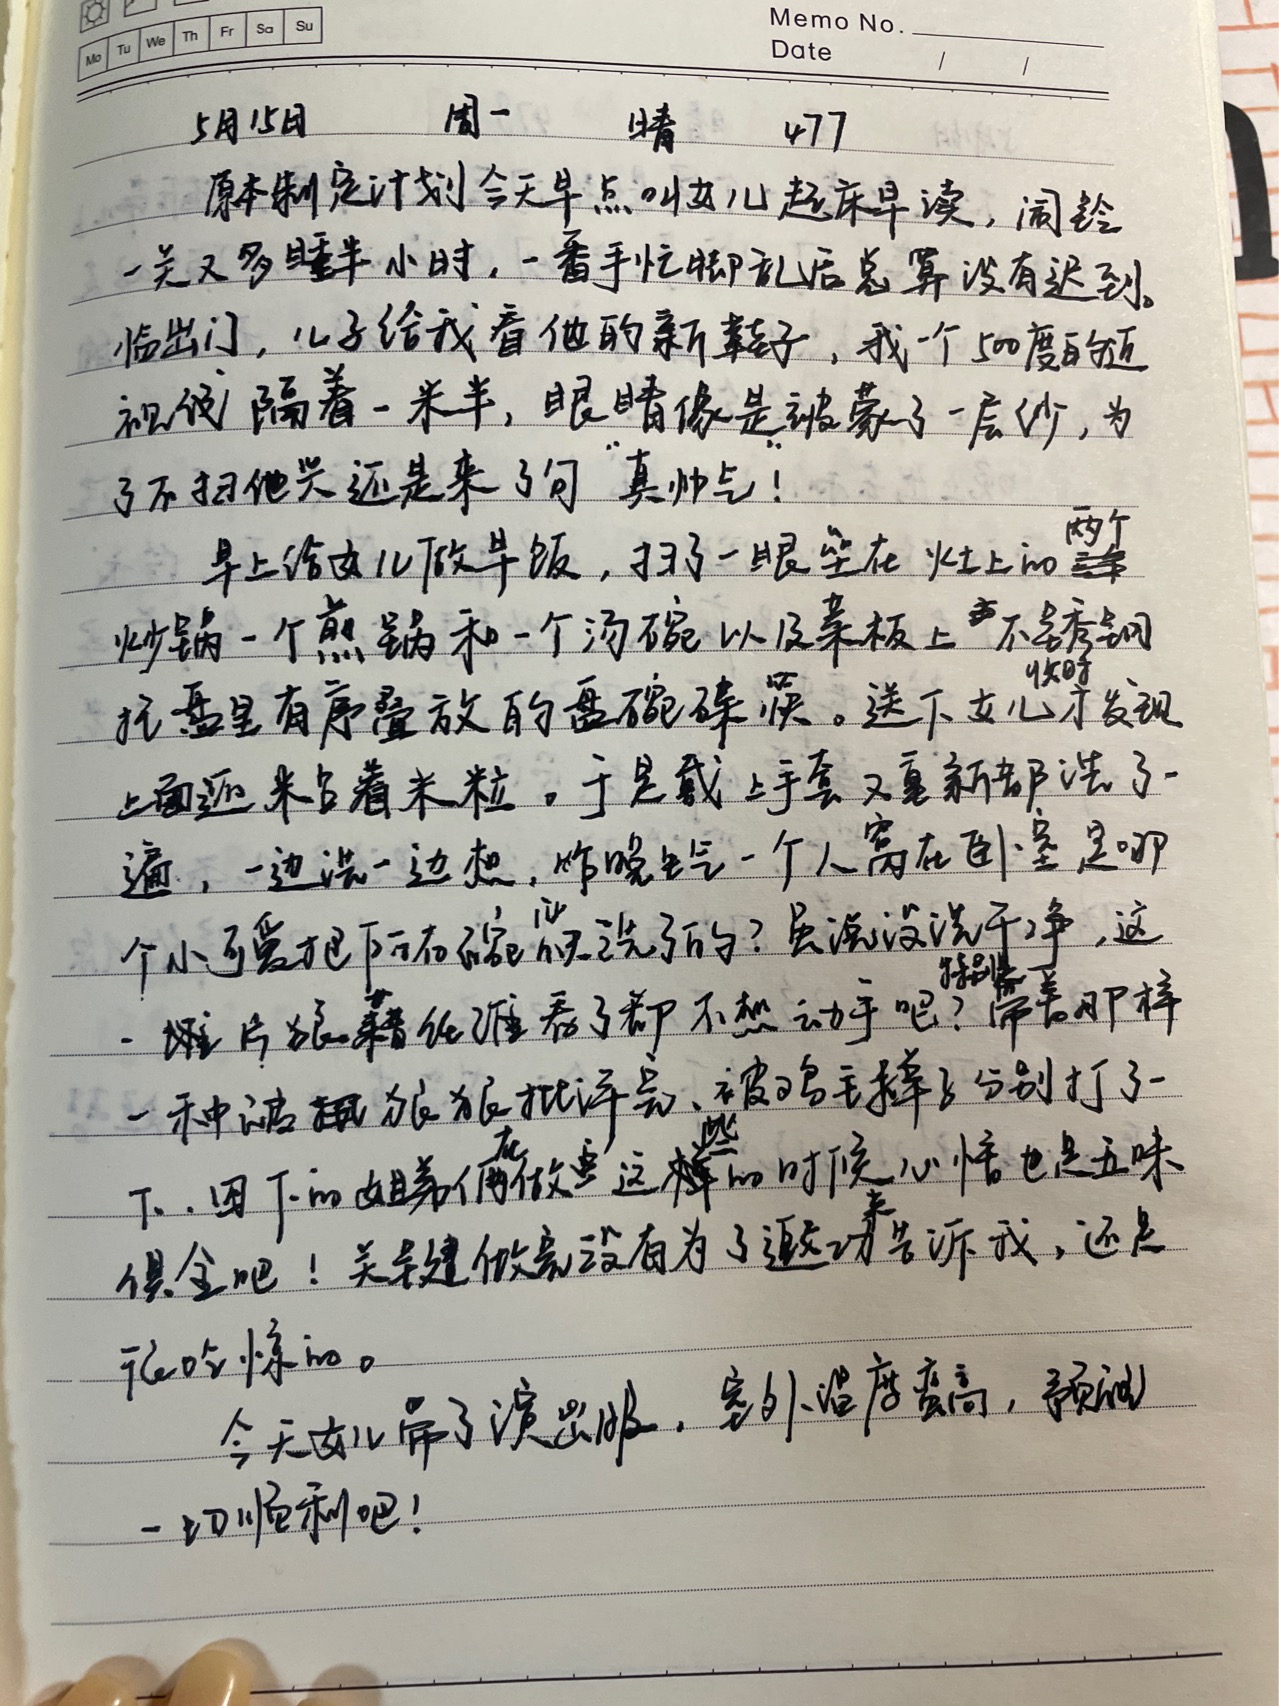 Mo Tu We Th Fr Sa Su
Memo No.
Date / /
5月15日 周一 晴 477
原本制定计划今天早点叫女儿起床早读，闹铃
一关又多睡半小时，一番手忙脚乱后总算没有迟到。
临出门，儿子给我看他的新鞋子，我一个500度的近
视眼隔着一米半，眼睛像是被蒙了一层纱，为
了不扫他兴还是来了句“真帅气！”
早上给女儿做早饭，扫了一眼坐在灶上的两个
炒锅一个煎锅和一个汤碗以及菜板上不锈钢
托盘里有序叠放的盘碗碟筷。送下女儿收时才发现
上面还粘着米粒。于是戴上手套又重新都洗了一
遍，一边洗一边想，昨晚生气一个人窝在卧室是哪
个小可爱把所有碗筷洗了的？虽说没洗干净，这
一片狼藉任谁看了都不想动手吧？特别像那样
一种被狠狠批评完、被鸡毛掸子分别打了一
下、四下的姐弟俩在做这些的时候心情也是五味
俱全吧！关键做完没有为了邀功来告诉我，还是
吃惊的。
今天女儿带了演出服，室外温度蛮高，预祝
一切顺利吧！